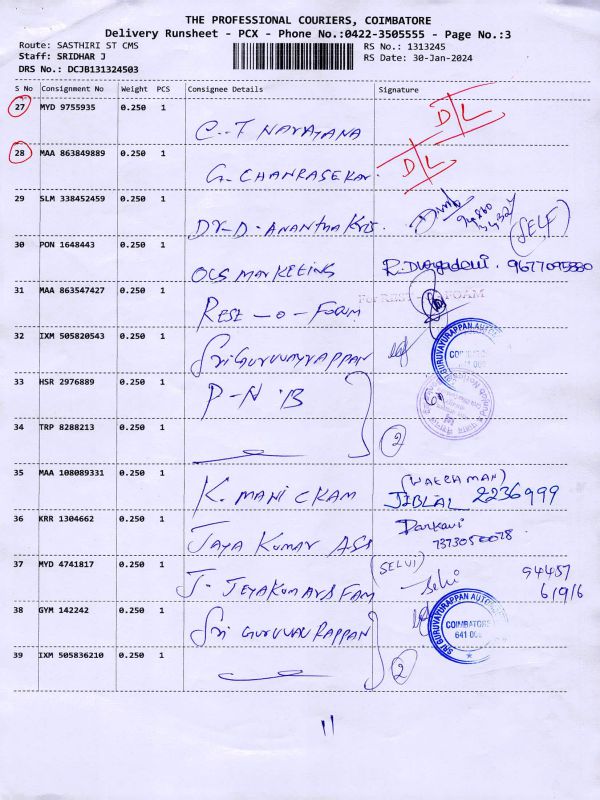 THE PROFESSIONAL COURIERS, COIMBATORE
Delivery Runsheet - PCX - Phone No.:0422-3505555 - Page No.:3
Route: SASTHIRI ST CMS
RS No.: 1313245
Staff: SRIDHAR J
RS Date: 30-Jan-2024
DRS No.: DCJB131324503
S No Consignment No Weight PCS Consignee Details Signature
27 MYD 9755935 0.250 1 C.T NARAYANA D/L
28 MAA 863849889 0.250 1 G. CHANRASEKAR. D/L
29 SLM 338452459 0.250 1 DR-D. ANANTHA KRIS. (SELF)
30 PON 1648443 0.250 1 OCS MARKETING R. 9677095880
31 MAA 863547427 0.250 1 REST - O - FOAM For REST FOAM
32 IXM 505820543 0.250 1 SRI GURUVAYRAPPAN
33 HSR 2976889 0.250 1 P-N B
34 TRP 8288213 0.250 1 2
35 MAA 108089331 0.250 1 K. MANICKAM (WATCHMAN) JIBLAL 2236999
36 KRR 1304662 0.250 1 JAYA KUMAR ASS
37 MYD 4741817 0.250 1 J. JEYAKUMAR &FAM (SELVI) Selvi 94457 61916
38 GYM 142242 0.250 1 SRI GURUVAURAPPAN COIMBATORE 641 00
39 IXM 505836210 0.250 1 2
11